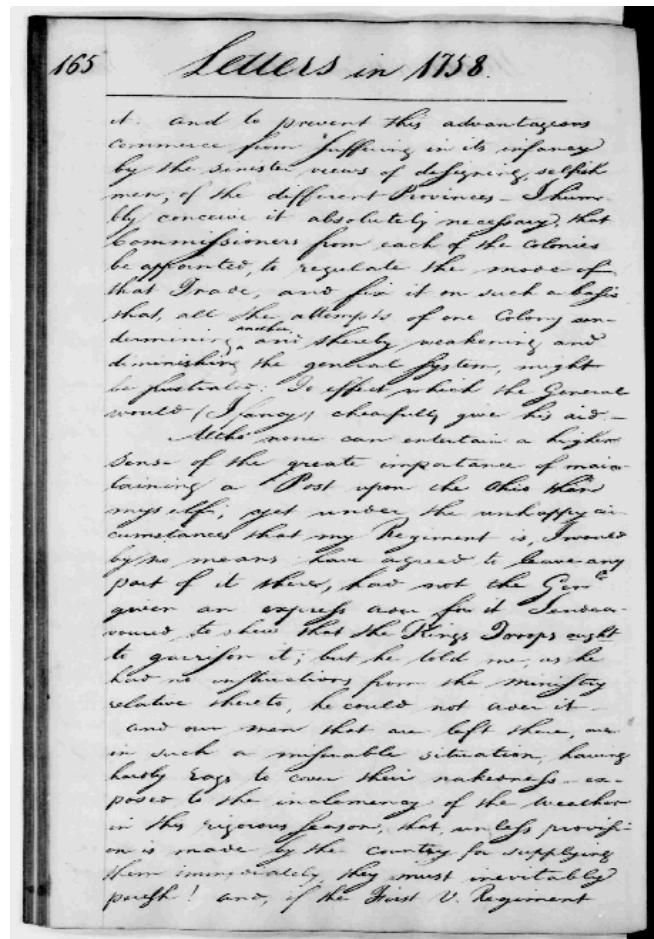 165 Letters in 1758.
it. and to prevent this advantageous
commerce from suffering in its infancy
by the sinister views of designing, selfish
men, of the different Provinces - I hum-
bly conceive it absolutely necessary, that
Commissioners from each of the Colonies
be appointed, to regulate the mode of
that Trade, and fix it on such a basis
that, all the attempts of one Colony un-
another,
dermining and thereby weakening and
diminishing the general System, might
be frustrated: To effect which the General
would (I fancy) chearfully give his aid -
Altho' none can entertain a higher
sense of the great importance of main-
taining a Post upon the Ohio than
myself; yet under the unhappy cir
cumstances that my Regiment is, I would
by no means have agreed to leave any
part of it there, had not the Genl.
given an express order for it I endea-
voured to shew that the Kings Troops ought
to garrison it; but he told me, as he
had no instructions from the ministry
relative thereto, he could not order it -
and our men that are left there, are
in such a miserable situation, having
hardly rags to cover their nakedness - ex-
posed to the inclemency of the weather
in this rigorous season; that, unless provisi-
on is made by the Country for supplying
them immediately, they must inevitably
perish! and, if the First V. Regiment